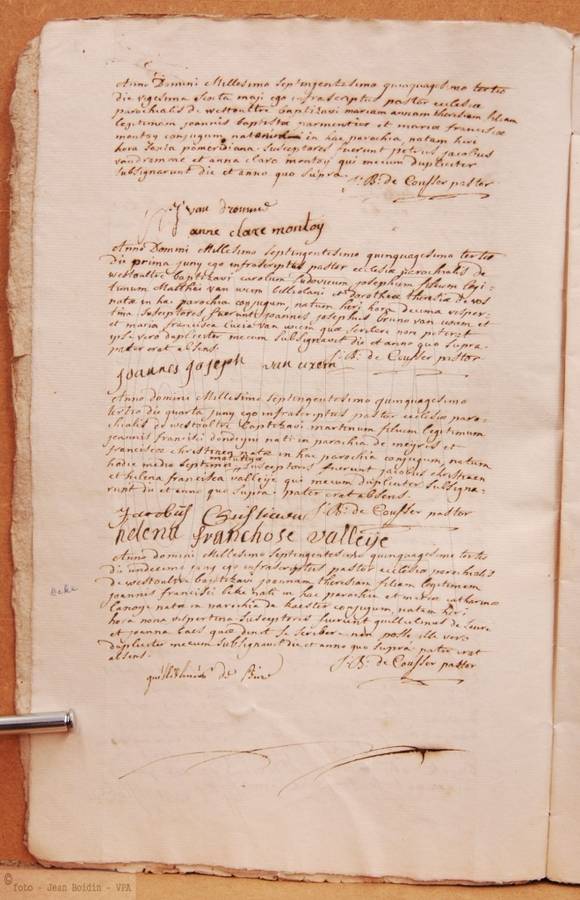 Anno Domini Millesimo septingentesimo quinquagesimo tertio
die vigesima sexta maij ego infrascriptus pastor ecclesiæ
parochialis de westoultre baptizavi mariam annam theresiam filiam
legitimam joannis baptistæ parmentier et mariæ franciscæ
montoy conjugum in hac parochia, natam heri
hora pomeridiana. susceptores fuerunt petrus jacobus
vandromme et anna clara montoy qui mecum dupliciter
subsignarunt die et anno quo supra.
J: B: de Cousser pastor
van dromme
anne clare montoy
Anno Domini Millesimo septingentesimo quinquagesimo tertio
die prima juny ego infrascriptus pastor ecclesiæ parochialis de
westoultre baptizavi carolum ludovicum josephum filium legi-
timum Matthæi van uxem et dorothea theresia de vos
nata in hac parochia conjugum, natum heri hora decima vesper-
tina. susceptores fuerunt joannes josephus bruno van uxem et
et maria francisca lucia van uxem quæ scribere non poterat
ipse vero dupliciter mecum subsignavit die et anno quo supra.
pater erat absens.
J: B: de Cousser pastor
joannes joseph van uxem
Anno domini Millesimo septingentesimo quinquagesimo
tertio die quarta juny ego infrascriptus pastor ecclesiæ paro-
chialis de westoultre baptizavi martinum filium legitimum
joannis francisci dondeyne nati in parochia de meteris et
franciscæ nata in hac parochia conjugum, natum
matutina
hodie media septima susceptores fuerunt jacobus
et helena francisca valleije qui mecum dupliciter subsigna-
runt die et anno quo supra. pater erat absens.
J: B: de Cousser pastor
Jacobus
helena franchose valleije
Anno domini Millesimo septingentesimo quinquagesimo tertio
die undecima juny ego infrascriptus pastor ecclesiæ parochialis
de westoultre baptizavi joannam theresiam filiam legitimam
joannis francisci beke nati in hac parochia et mariæ catharinæ
nata in parochia de kaester conjugum, natam heri
hora nona vespertina. susceptores fuerunt guillielmus de
et joanna baes quæ dixit se scribere non posse ille vero
dupliciter mecum subsignavit die et anno quo supra. pater erat
absens.
J: B: de Cousser pastor
de
Beke
© foto - Jean Boidin - VPA